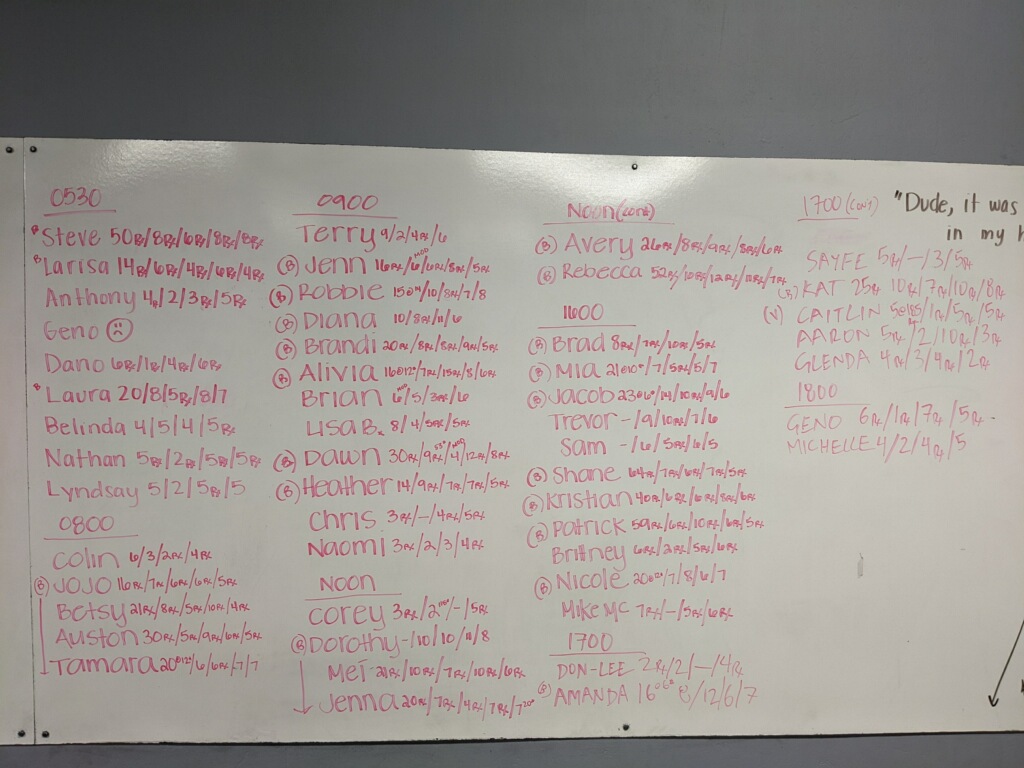 0530
Steve 50Rx/8Rx/6Rx/8Rx/8Rx
B Larisa 14Rx/6Rx/4Rx/6Rx/4Rx
Anthony 4Rx/2/3Rx/5Rx
Geno
Dano 6Rx/1Rx/4Rx/6Rx
B Laura 20/8/5Rx/8/7
Belinda 4/5/4/5Rx
Nathan 5Rx/2Rx/5Rx/5Rx
Lyndsay 5/2/5Rx/5
0800
Colin 6/3/2Rx/4Rx
(B) JOJO 16Rx/7Rx/6Rx/6Rx/5Rx
Betsy 21Rx/8Rx/5Rx/10Rx/4Rx
Auston 30Rx/5Rx/9Rx/6Rx/5Rx
Tamara 20@12"/6/6Rx/7/7
0900
Terry 9/2/4Rx/6
(B) Jenn 16Rx/6 MOD/6Rx/8Rx/5Rx
(B) Robbie 15/10/8Rx/7/8
(B) Diana 10/8Rx/11/6
(B) Brandi 20Rx/8Rx/8Rx/9Rx/5Rx
(B) Alivia 16@12"/7Rx/15Rx/8/6Rx
Brian 6/5/3Rx/6
Lisa B. 8/4/5Rx/5Rx
(B) Dawn 30Rx/9Rx/4/12Rx/8Rx
(B) Heather 14/9Rx/7Rx/7Rx/5Rx
Chris 3Rx/-/4Rx/5Rx
Naomi 3Rx/2/3/4Rx
Noon
Corey 3Rx/2/-/5Rx
(B) Dorothy -/10/10/11/8
Mei 21Rx/10Rx/7Rx/10Rx/6Rx
Jenna 20Rx/7Rx/4Rx/7Rx/7
Noon (cont)
(B) Avery 26Rx/8Rx/9Rx/8Rx/6Rx
(B) Rebecca 52Rx/10Rx/12Rx/11Rx/7Rx
1600
(B) Brad 8Rx/7Rx/10Rx/5Rx
(B) Mia 21@10"/7/5Rx/5/7
(B) Jacob 23@6"/14/10Rx/9/6
Trevor -/9/10Rx/7/6
Sam -/6/5Rx/6/5
(B) Shane 64Rx/7Rx/6Rx/7Rx/5Rx
(B) Kristian 40Rx/6Rx/6Rx/8Rx/6Rx
(B) Patrick 59Rx/6Rx/10Rx/6Rx/5Rx
Britney 6Rx/2Rx/5Rx/6Rx
(B) Nicole 20/7/8/6/7
Mike Mc 7Rx/-/5Rx/6Rx
1700
DON-LEE 2Rx/2/-/4Rx
(B) AMANDA 16 8/12/6/7
1700 (CONT)
SAYFE 5Rx/-/3/5Rx
(B) KAT 25Rx 10Rx/7Rx/10Rx/8Rx
(V) CAITLIN /1Rx/5Rx/5Rx
AARON 5Rx/2/10Rx/3Rx
GLENDA 4Rx/3/4Rx/2Rx
1800
GENO 6Rx/1Rx/7Rx/5Rx
MICHELLE 4/2/4Rx/5
"Dude, it was
in my